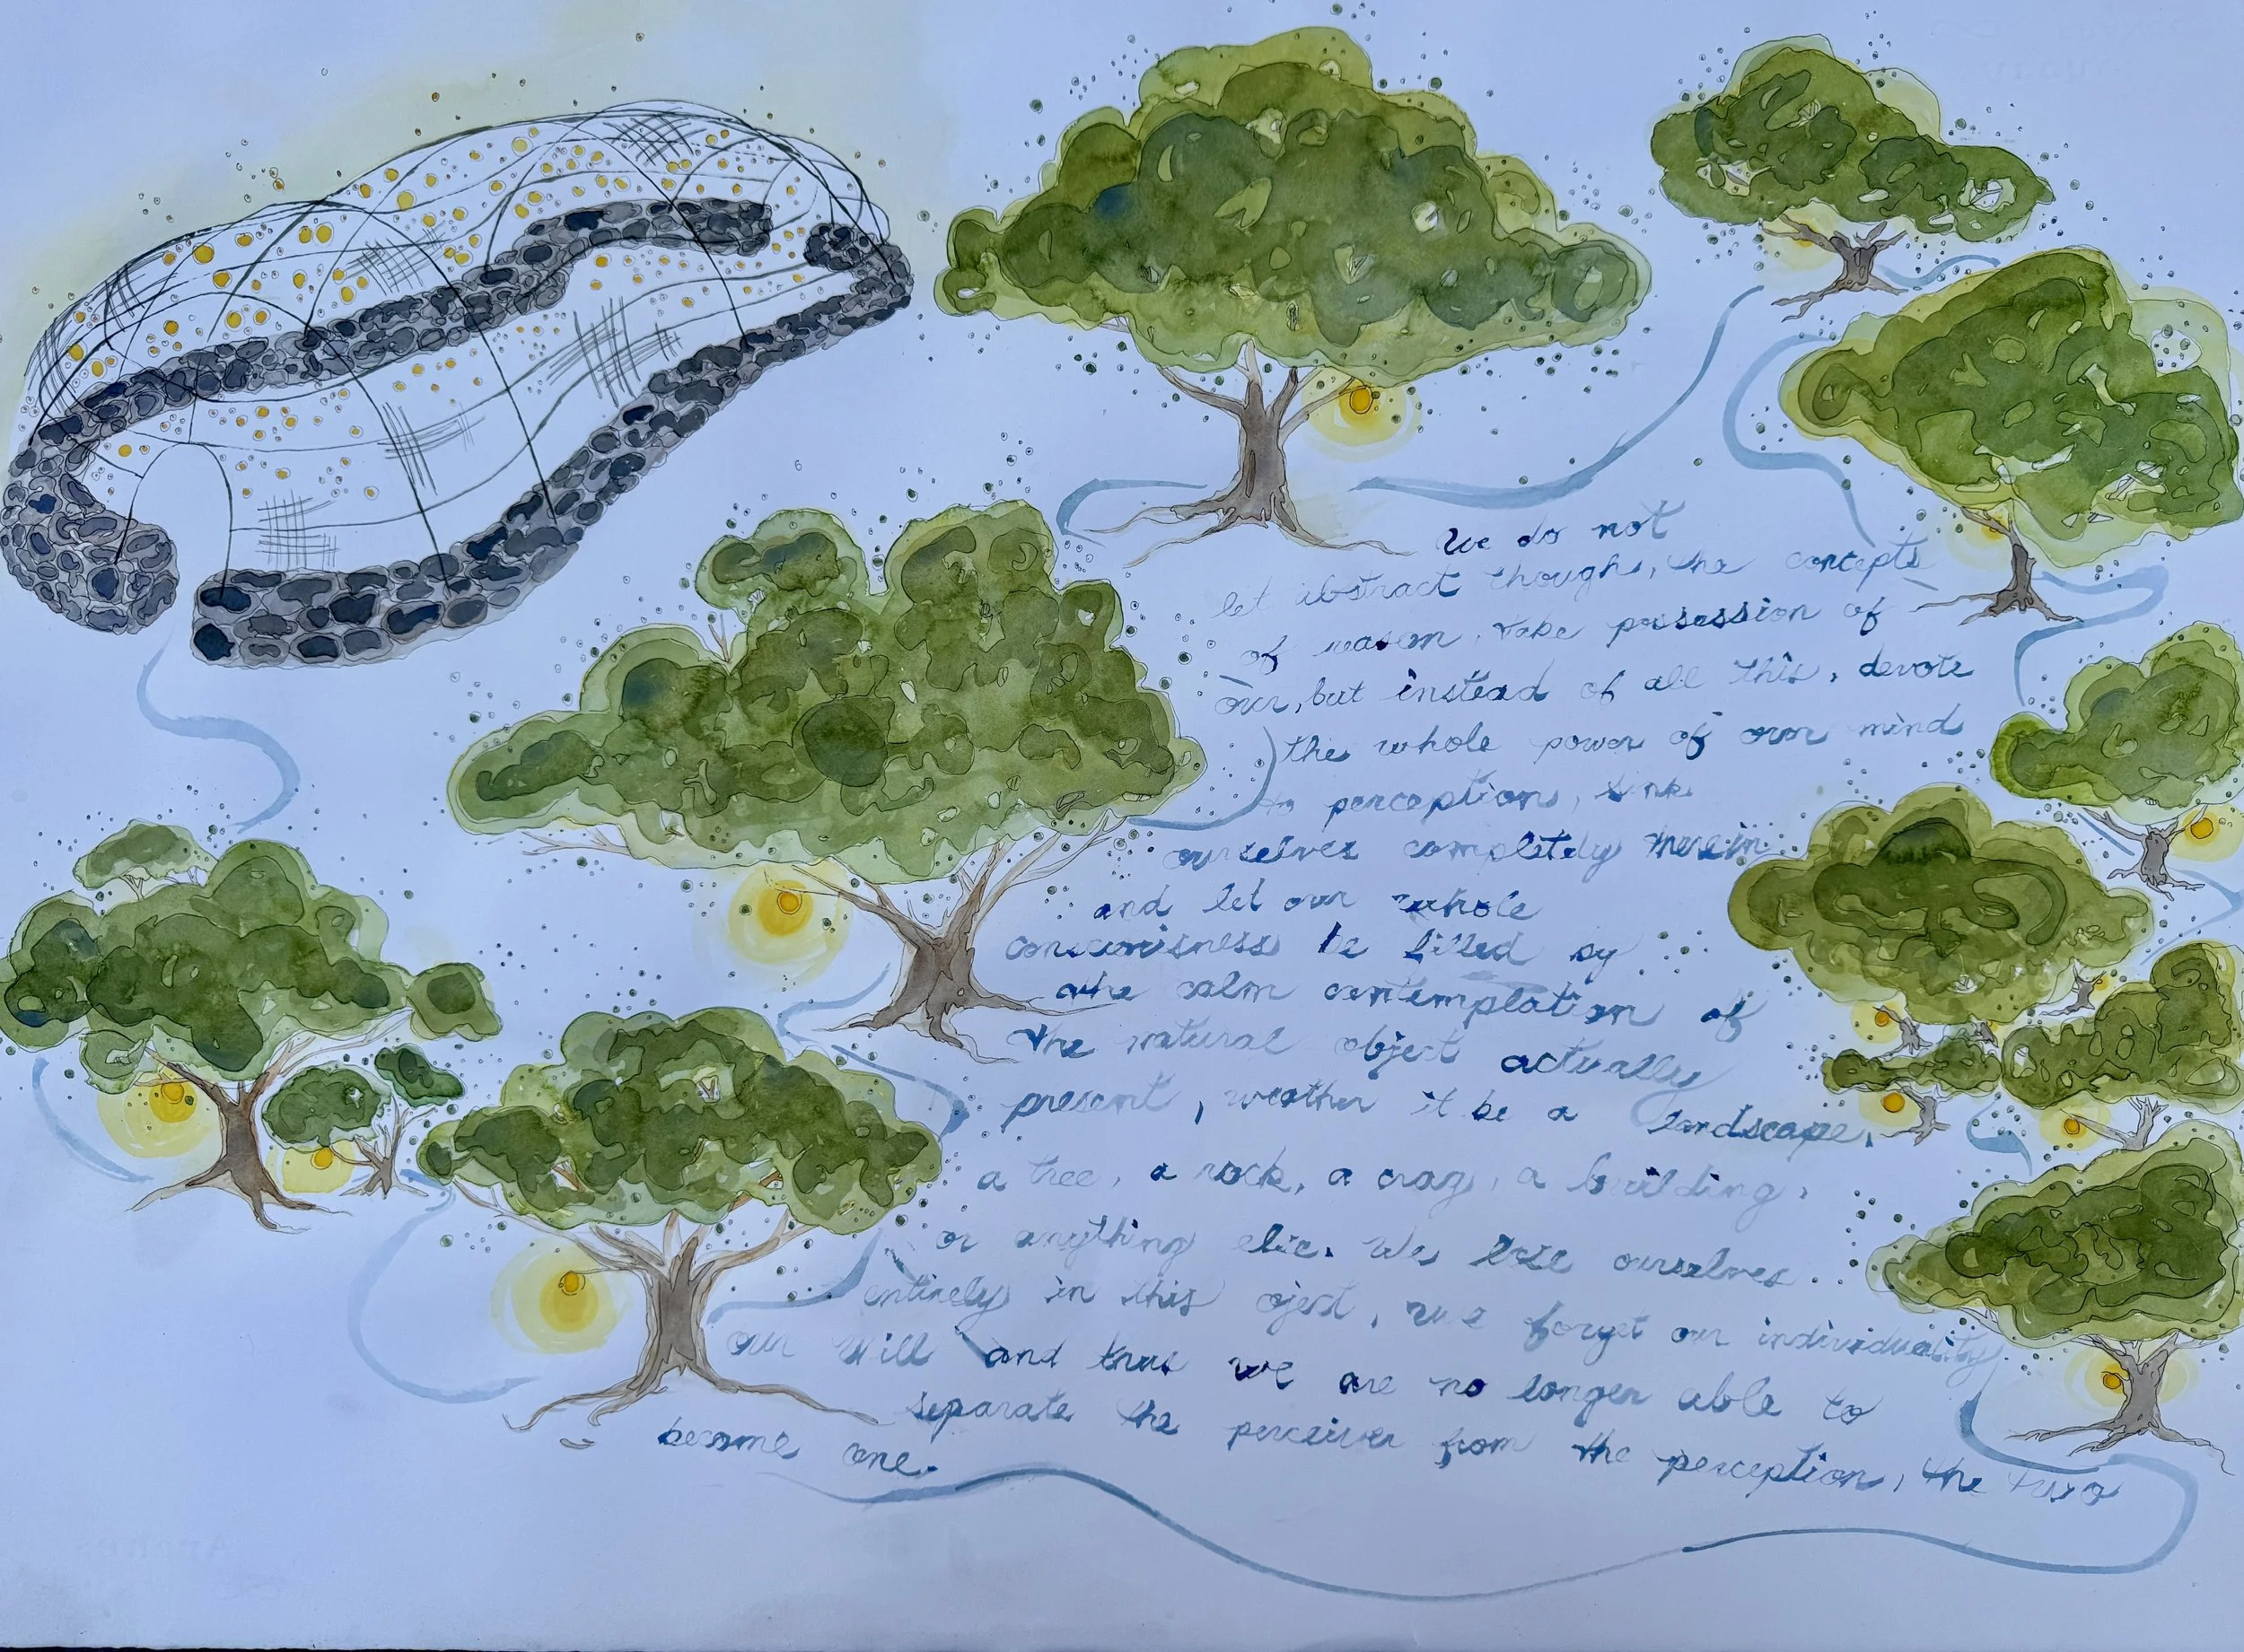 We do not
let abstract though, the concepts
of reason, take possession of
our, but instead of all this, devote
the whole power of our mind
to perception, sink
ourselves completely therein
and let our whole
consciousness be filled by
the calm contemplation of
the natural object actually
present, weather it be a landscape,
a tree, a rock, a crag, a building,
or anything else. We lose ourselves
entirely in this oject, we forget our individuality
our will and thus we are no longer able to
separate the perceiver from the perception, the two
become one.